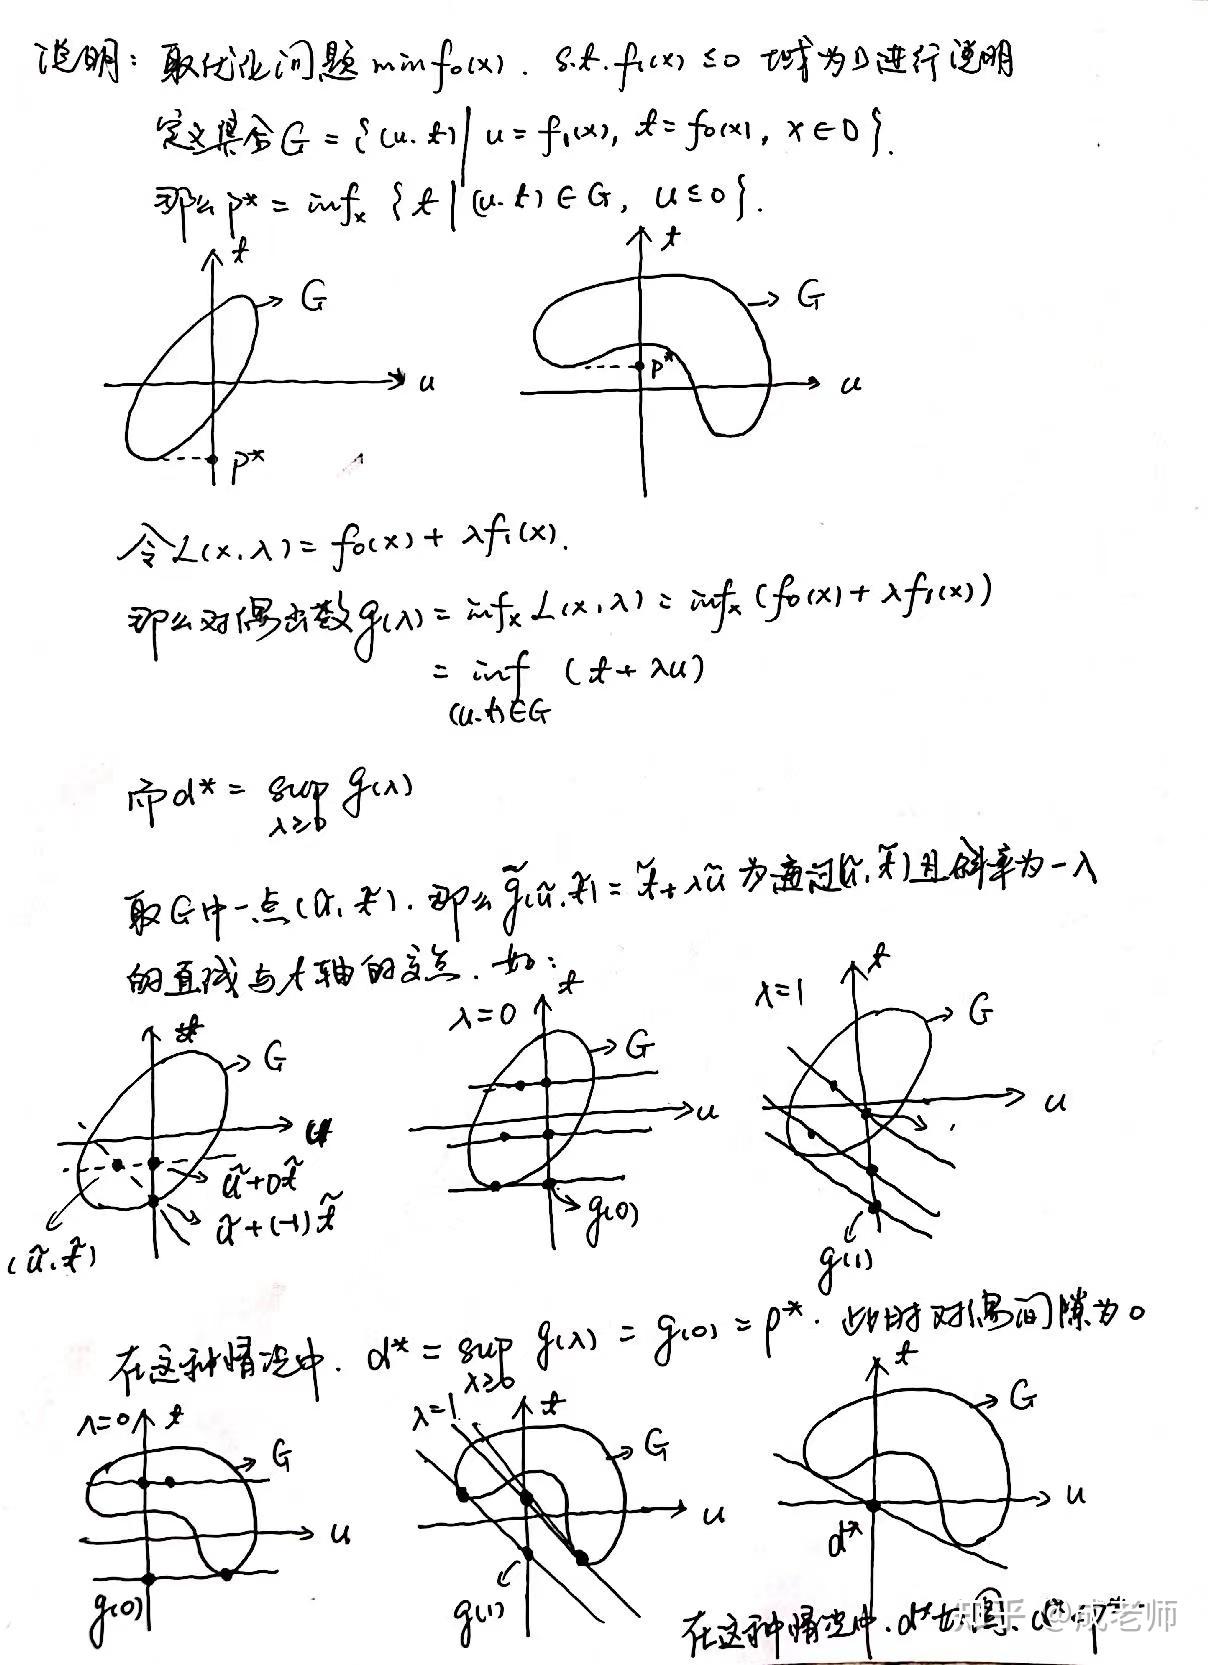 说明: 取优化问题 min f₀(x). s.t. f₁(x) ≤ 0 域为D进行说明
定义集合 G = {(u.t) | u = f₁(x), t = f₀(x), x ∈ D}.
那么 p* = inf_x {t | (u.t) ∈ G, u ≤ 0}.
t G u p*
t G u p*
令 L(x,λ) = f₀(x) + λf₁(x).
那么对偶函数 g(λ) = inf_x L(x,λ) = inf_x (f₀(x) + λf₁(x))
= inf (t + λu)
(u.t)∈G
而 d* = sup g(λ)
λ≥0
取G中一点(ũ, t̃). 那么 g̃(ũ,t̃) = t̃ + λũ 为通过(ũ,t̃)且斜率为-λ
的直线与t轴的交点. 如:
t G u ũ+0t̃ ũ+(-1)t̃ (ũ,t̃)
λ=0 t G u g(0)
λ=1 t G u g(1)
在这种情况中. d* = sup g(λ) = g(0) = p*. 此时对偶间隙为0
λ≥0
λ=0 t G u g(0)
λ=1 t G u g(1)
t G u d*
在这种情况中. d*
知乎 @成老师